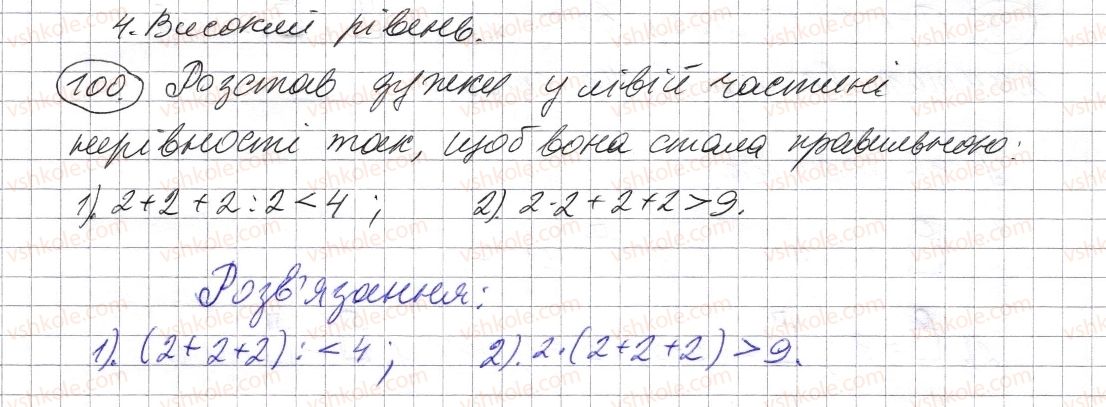 4. Високий рівень.
100. Розстав дужки у лівій частині
нерівності так, щоб вона стала правильною:
1). 2+2+2:2<4 ; 2). 2·2+2+2>9.
Розв'язання:
1). (2+2+2): <4 ; 2). 2·(2+2+2)>9.